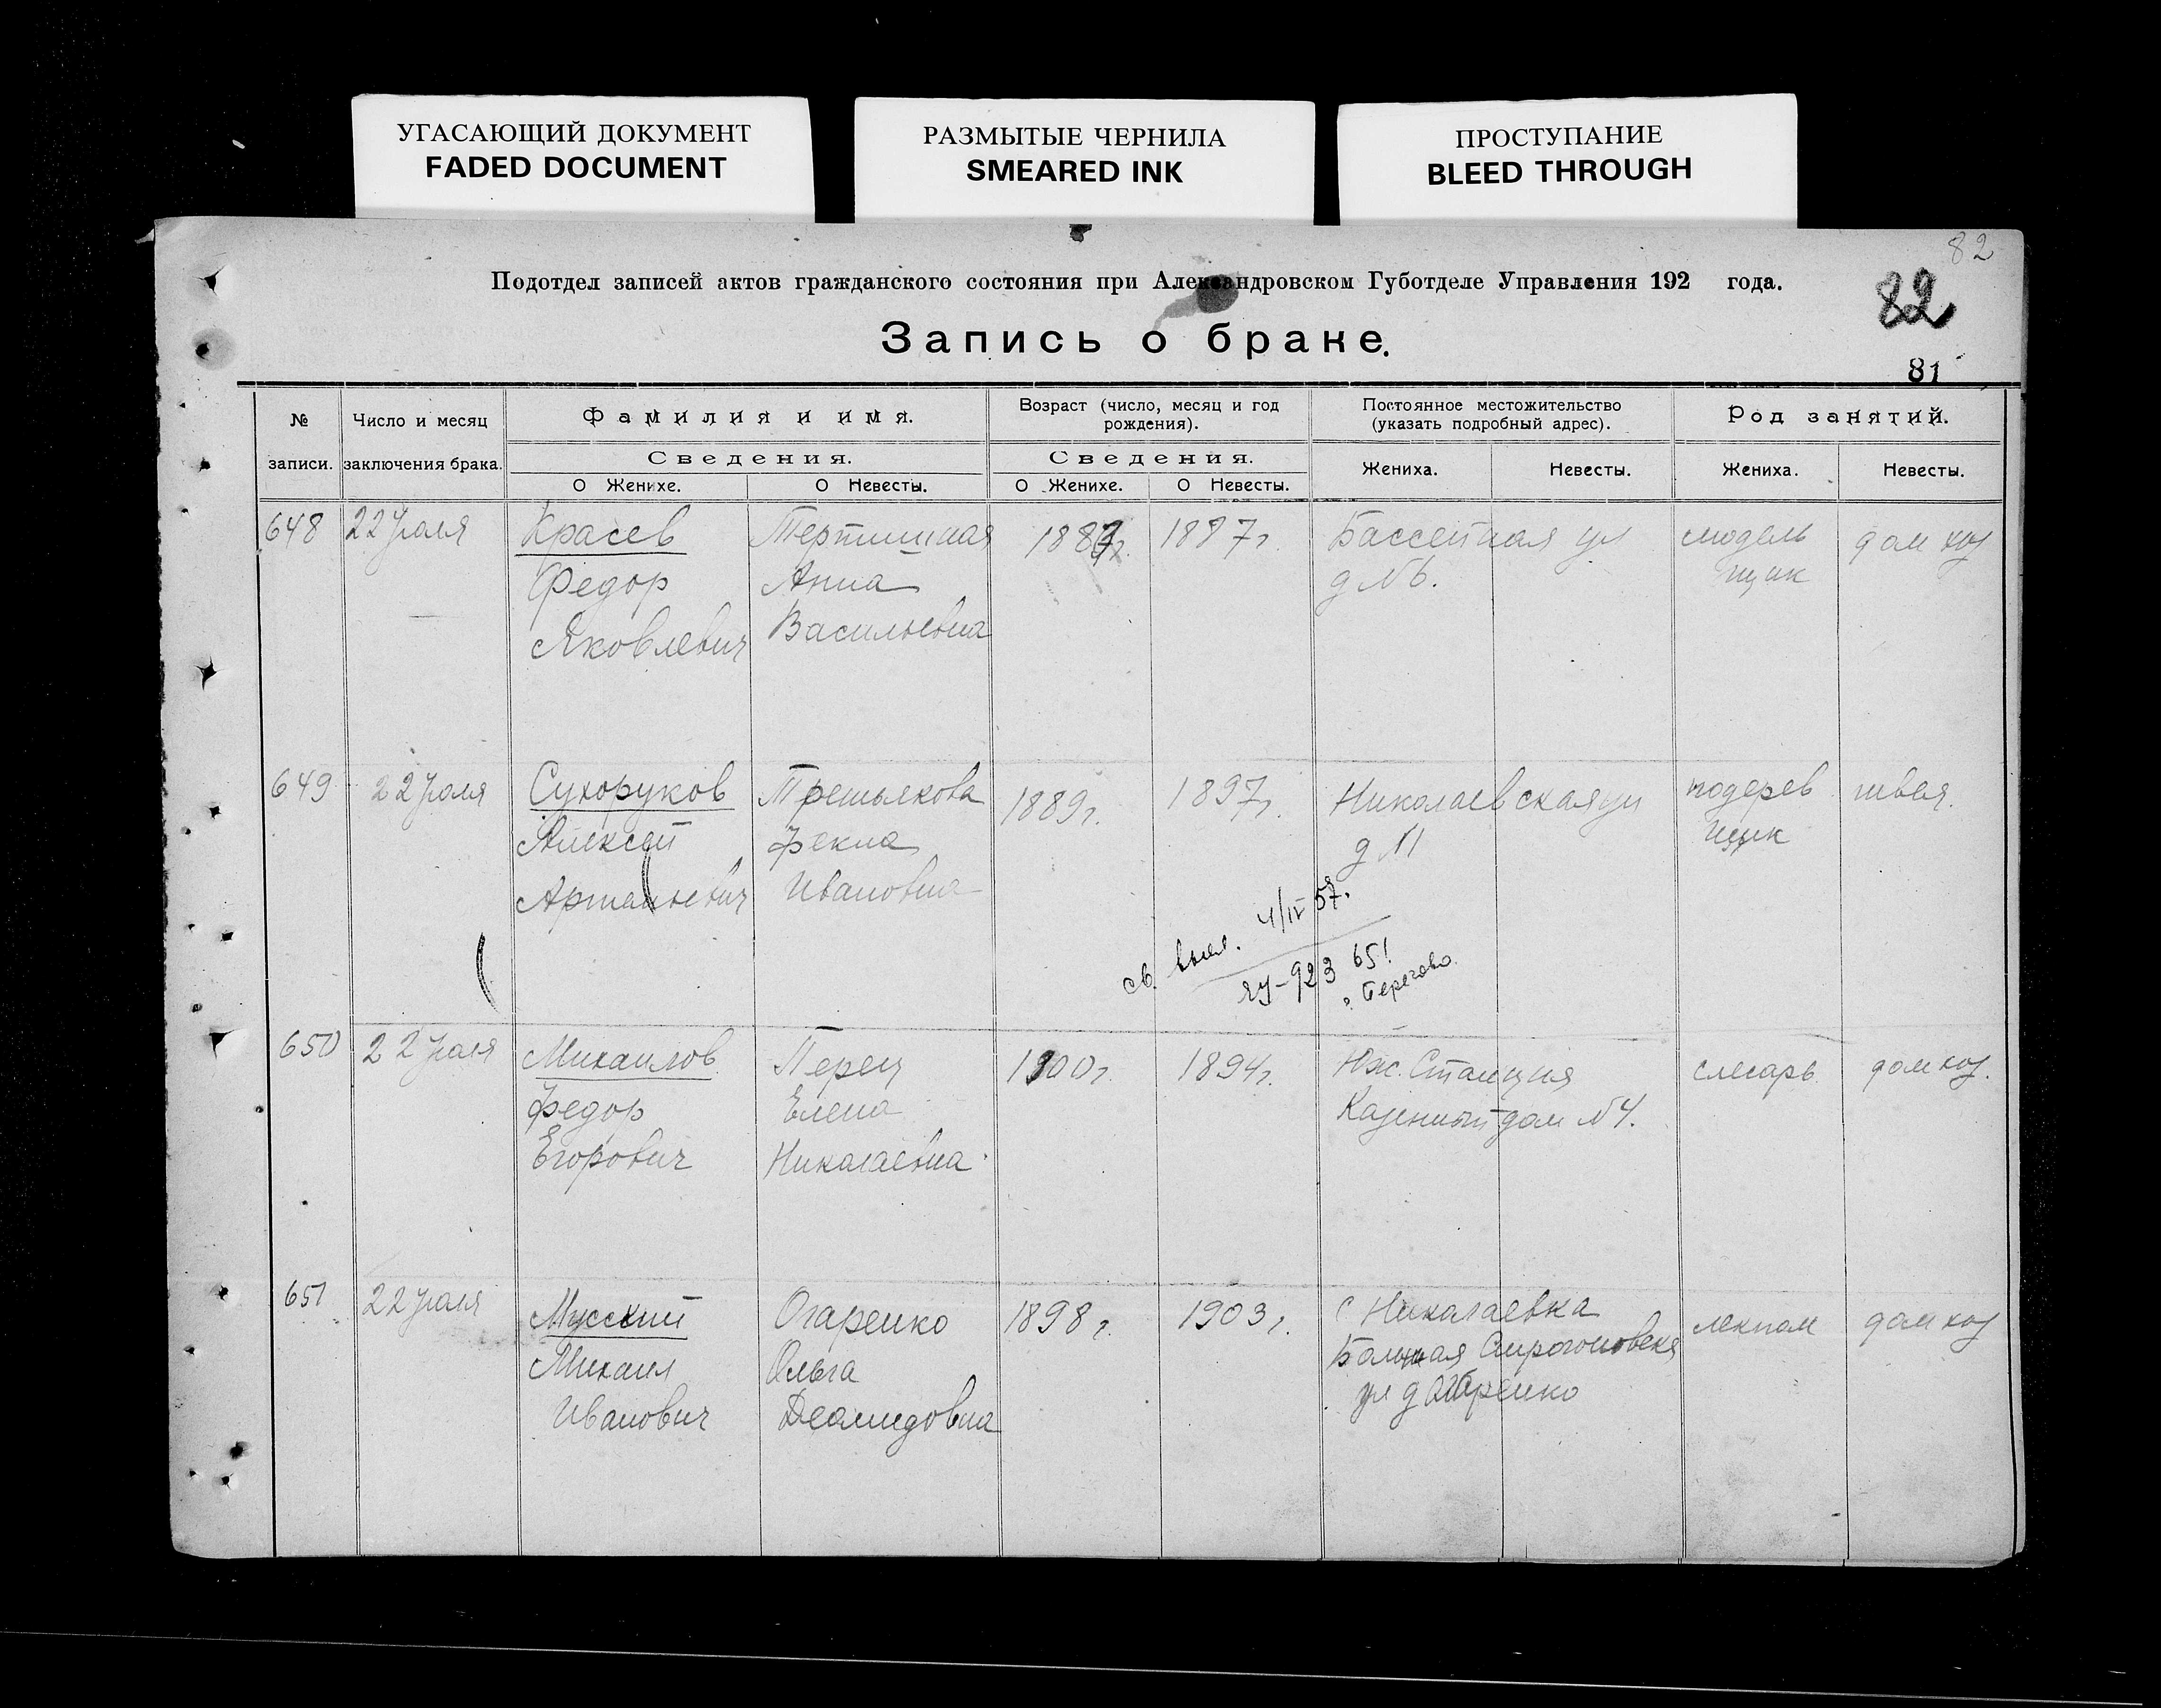 УГАСАЮЩИЙ ДОКУМЕНТ
FADED DOCUMENT
РАЗМЫТЫЕ ЧЕРНИЛА
SMEARED INK
ПРОСТУПАНИЕ
BLEED THROUGH
82
Подотдел записей актов гражданского состояния при Александровском Губотделе Управления 192 года.
82
Запись о браке.
81
№ записи.
Число и месяц заключения брака.
Фамилия и имя.
Возраст (число, месяц и год рождения).
Постоянное местожительство (указать подробный адрес).
Род занятий.
Сведения.
Сведения.
О Женихе.
О Невесты.
О Женихе.
О Невесты.
Жениха.
Невесты.
Жениха.
Невесты.
648
22 Июля
Красев
Федор
Яковлевич
Тертишная
Анна
Васильевна
1887г.
1897г.
Бассейная ул
д N6.
модель
щик
дом хоз
649
22 Июля
Сухоруков
Алексей
Артамьевич
Третьякова
Фекла
Ивановна
1889г.
1897г.
Николаевская ул
д N1
модерев
щик
швея.
св. выл. 4/IV 57.
ЯУ-923 651
г. Берегово.
650
22 Июля
Михаилов
Федор
Егорович
Перец
Елена
Николаевна
1900г.
1894г.
Юж. Станция
Казенный дом N4.
слесарь
дом хоз.
651
22 Июля
Мусский
Михаил
Иванович
Огаренко
Ольга
Демидовна
1898г.
1903г.
с Николаевка
Большая
ул д Огаренко
лекпом
дом хоз